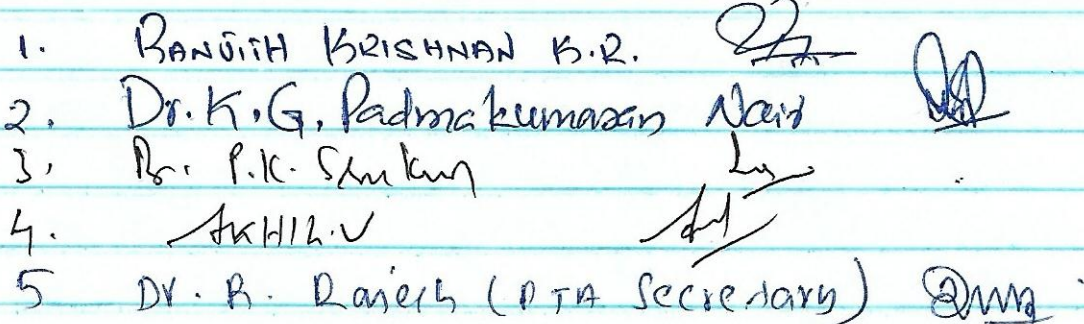 1. RANJITH KRISHNAN K.R.
2. Dr. K. G. Padmakumaran Nair
3. Dr. P.K.
4. AKHIL.V
5 Dr. R. Rajesh (PTA Secretary)